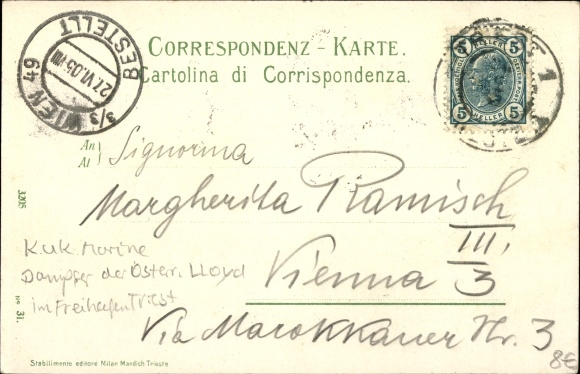 CORRESPONDENZ - KARTE.
Cartolina di Corrispondenza.
3/3 WIEN 49
27.VI.05
BESTELLT
5 HELLER 5
5 HELLER 5
An
Al
Signorina
Margherita Ramisch
III.
3
Vienna
Via Marokkaner Nr. 3
K.u.K. Marine
Dampfer der Österr. LLoyd
im Freihafen Triest
3205
No 31.
Stabilimento editore Milan Mandich Trieste
8€